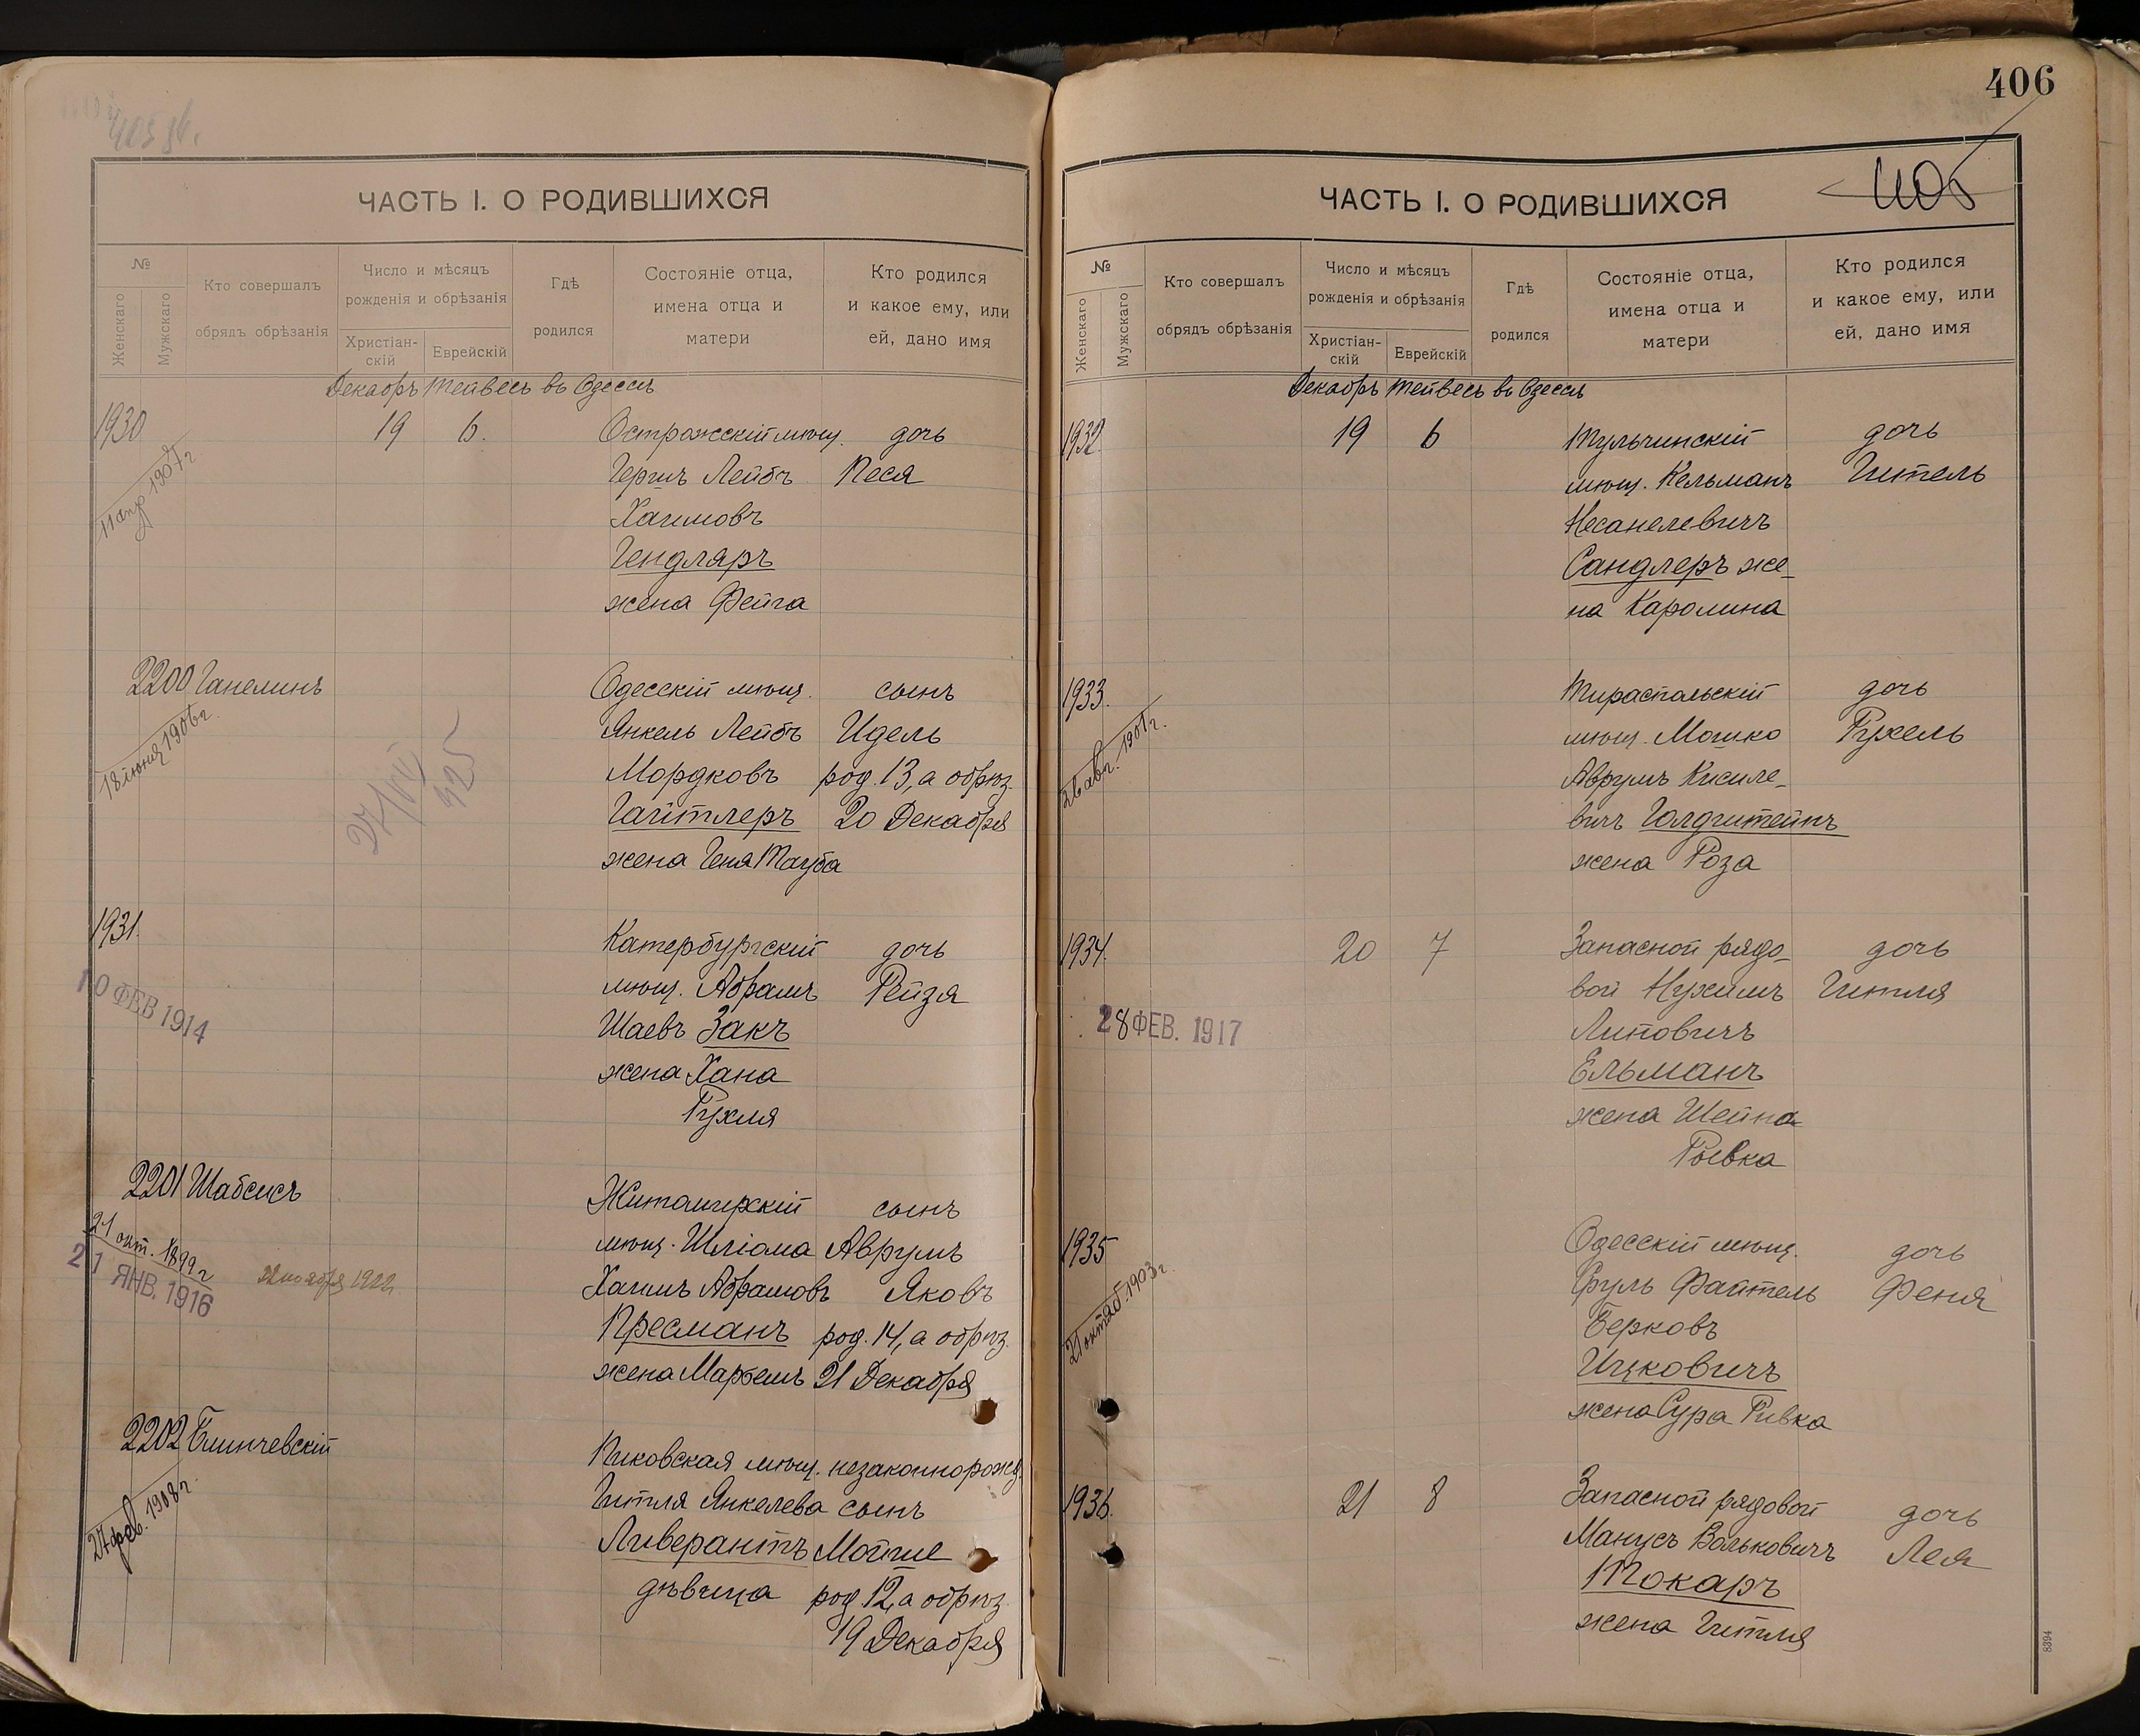 405 об.
ЧАСТЬ I. О РОДИВШИХСЯ
№
Женскаго
Мужскаго
Кто совершалъ
обрядъ обрѣзанія
Число и мѣсяцъ
рожденія и обрѣзанія
Христіан-
скій
Еврейскій
Гдѣ
родился
Состояніе отца,
имена отца и
матери
Кто родился
и какое ему, или
ей, дано имя
Декабрь Тейвесъ въ Одессѣ
1930 19 6. Острожскій мѣщ. дочь
11 апр 1907 г
Гершъ Лейбъ Песя
Хаимовъ
Гендляръ
жена Фейга
2200 Ганелинъ Одесскій мѣщ. сынъ
18 іюня 1906 г.
Янкель Лейбъ Идель
Мордковъ род. 13, а обрѣз.
Гайтлеръ 20 Декабря
жена Геня Тауба
27/VII 925
1931. Катербургскій дочь
мѣщ. Абрамъ Рейзя
10 ФЕВ 1914
Шаевъ Закъ
жена Хана
Рухля
2201 Шабсисъ Житомирскій сынъ
21 окт. 1899 г
мѣщ. Шліома Аврумъ
21 ЯНВ. 1916
ноября 1922
Хаимъ Абрамовъ Яковъ
Пресманъ род. 14, а обрѣз.
жена Марьемъ 21 Декабря
2202 Блинчевскій Пиковская мѣщ. незаконнорожд.
27 фев. 1908 г.
Гитля Янкелева сынъ
Ливерантъ Мойше
дѣвица род 12, а обрѣз.
19 Декабря
406
ЧАСТЬ I. О РОДИВШИХСЯ
№
Женскаго
Мужскаго
Кто совершалъ
обрядъ обрѣзанія
Число и мѣсяцъ
рожденія и обрѣзанія
Христіан-
скій
Еврейскій
Гдѣ
родился
Состояніе отца,
имена отца и
матери
Кто родился
и какое ему, или
ей, дано имя
Декабрь Тейвесъ въ Одессѣ
1932. 19 6 Тульчинскій дочь
мѣщ. Кельманъ Гитель
Несанелевичъ
Сандлеръ же-
на Каролина
1933. Тираспольскій дочь
мѣщ. Мошко Рухель
26 авг. 1907 г.
Аврумъ Кисиле-
вичъ Голдштейнъ
жена Роза
1934. 20 7 Запасной рядо- дочь
вой Нухимъ Гитля
28 ФЕВ. 1917
Липовичъ
Ельманъ
жена Шейна
Рывка
1935 Одесскій мѣщ. дочь
21 октяб. 1903 г.
Сруль Файтель Феня
Берковъ
Ицковичъ
жена Сура Ривка
1936. 21 8 Запасной рядовой дочь
Манусъ Вольковичъ Лея
Токаръ
жена Гитля
8394